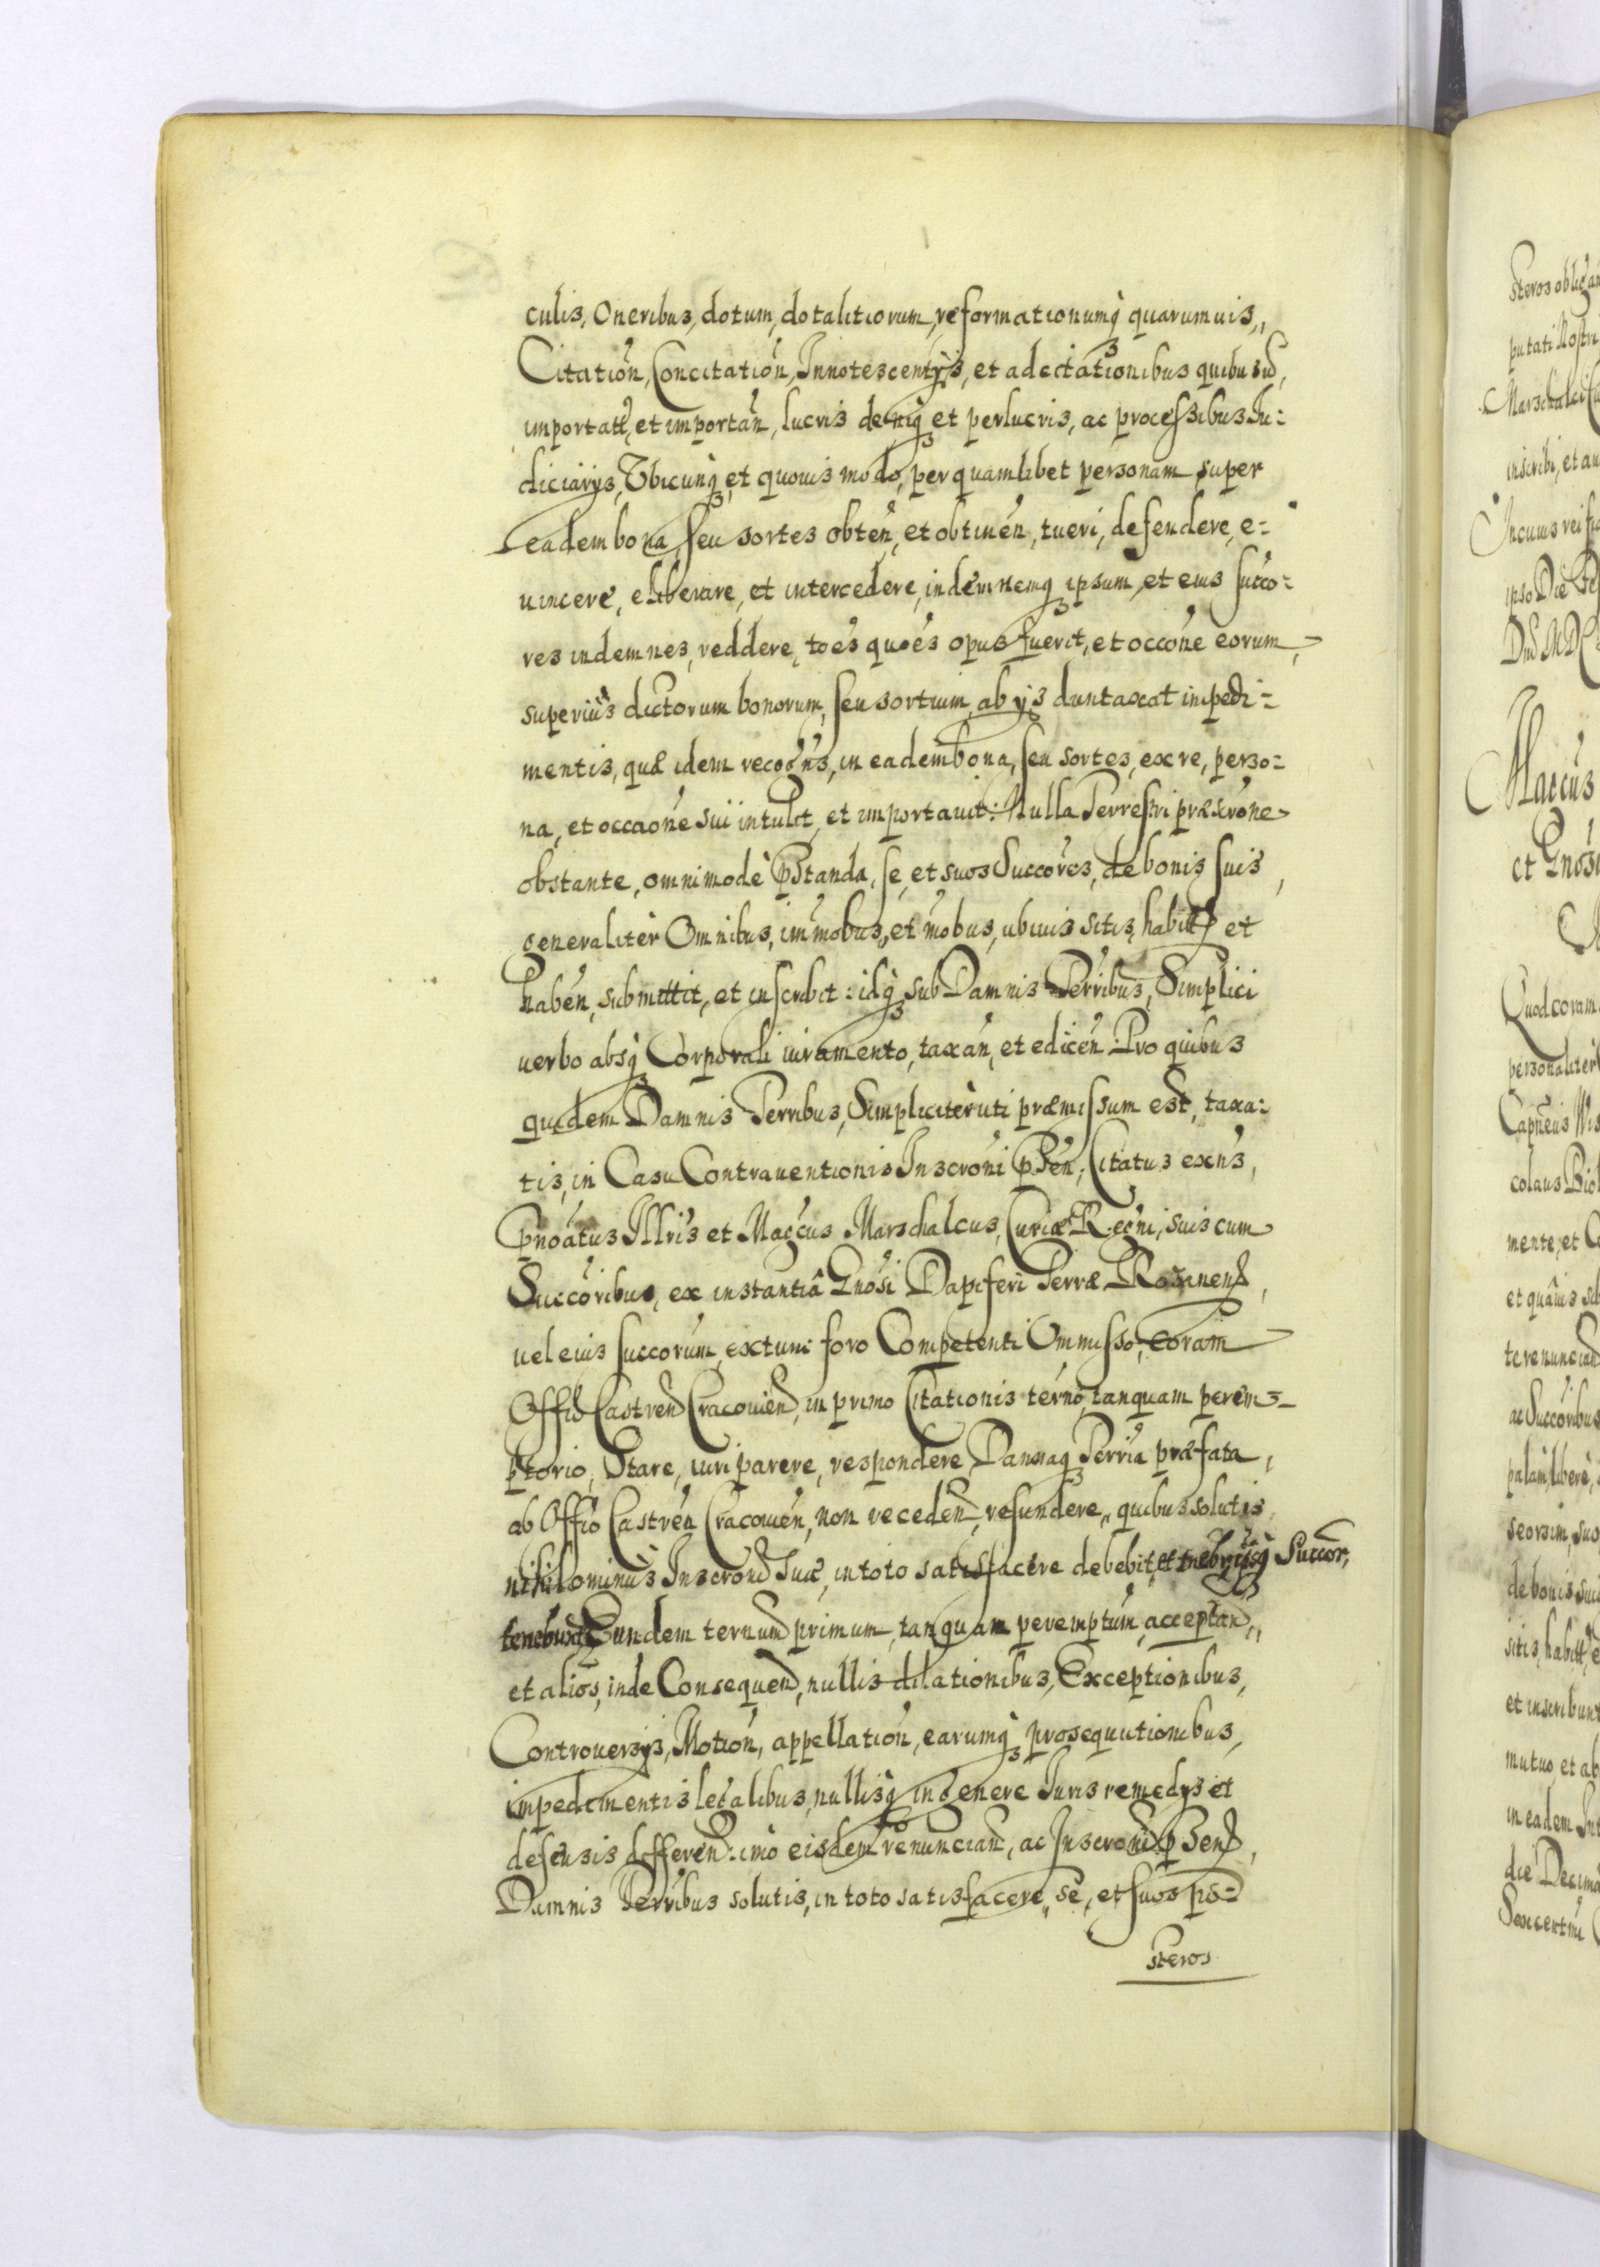 culis, Oneribus, dotum, dotalitiorum, reformationumq̃ quarumuis,,
Citatioñ, Concitatioñ, Innotescentÿs, et adcitationibus quibusũ,
importatt̃, et importañ, lucris deniq̃ et perlucris, ac processibus Iu-
diciarÿs, Vbicunq̃, et quouis modo, per quamlibet personam super
eadem bona, seu sortes obteñ, et obtineñ, tueri, defendere, e-
uincere, eliberare, et intercedere, indemnemq̃ ipsum, et eius succo-
res indemnes, reddere, toẽs quoẽs opus fuerit, et occõne eorum,
superiùs dictorum bonorum, seu sortium, ab ÿs duntaxat impedi-
mentis, quæ idem recogñs, in eadem bona, seu sortes, ex re, perso-
na, et occaõne sui intulit, et importauit: Nulla Terrestri præscrõne
obstante, omnimodè p̃standa, se, et suos Succores, de bonis suis,
generalitèr Omnibus, im̃mobus, et mobus, ubiuis sitis, habitt̃ et
habeñ, submittit, et inscribit: idq̃ sub Damnis Terribus, Simplici
uerbo absq̃ Corporali iuramento, taxañ, et ediceñ: Pro quibus
quidem Damnis Terribus, Simplicitèr uti præmissum est, taxa-
tis, in Casu Contrauentionis Inscrõni p̃señ, Citatus exñs,
p̃noãtus Illris et Magcus Marschalcus, Curiæ Regni, suis cum
Succoribus, ex instantiâ Gnõsi Dapiferi Terræ Rozaneñ,
uel eius succorum, extunc foro Competenti Ommisso, coram
Offiõ Castreñ Cracouieñ, in primo Citationis terno, tanquam perem-
ptorio, Stare, iuri parere, respondere, Damnaq̃ Terria præfata,
ab Offiõ Castreñ Cracouieñ, non recedeñ, refundere,, quibus solutis
nihilominùs Inscrõni Suæ, in toto satisfacere debebit, Succor,
tenebunt Eundem ternum primum, tanquam peremptum, acceptañ,,
et alios, inde Consequeñ, nullis dilationibus, Exceptionibus,
Controuersÿs, Motioñ, appellatioñ, earumq̃ prosequutionibus,
impedimentis legalibus, nullisq̃ in genere Iuris remedÿs et
defensis differeñ: imò eisdem renunciañ, ac Inscrõni p̃señ,
Damnis Terribus solutis, in toto satisfacere,, se, et suos po-
steros